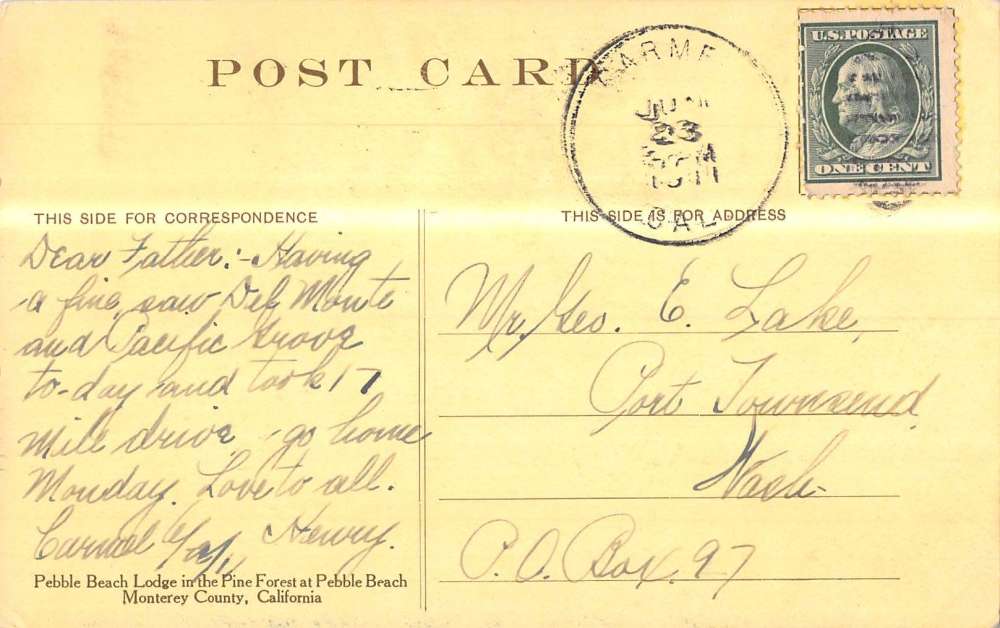 POST CARD
CARMEL
JUN
23
1911
CAL
U.S. POSTAGE
ONE CENT
THIS SIDE FOR CORRESPONDENCE
THIS SIDE IS FOR ADDRESS
Dear Father:- Having
a fine, saw Del Monte
and Pacific Grove
to-day and took 17
Mile drive, go home
Monday. Love to all.
Carmel Henry.
Pebble Beach Lodge in the Pine Forest at Pebble Beach
Monterey County, California
Mr. Geo. E. Lake,
Port Townsend
Wash-
P.O. Box. 97